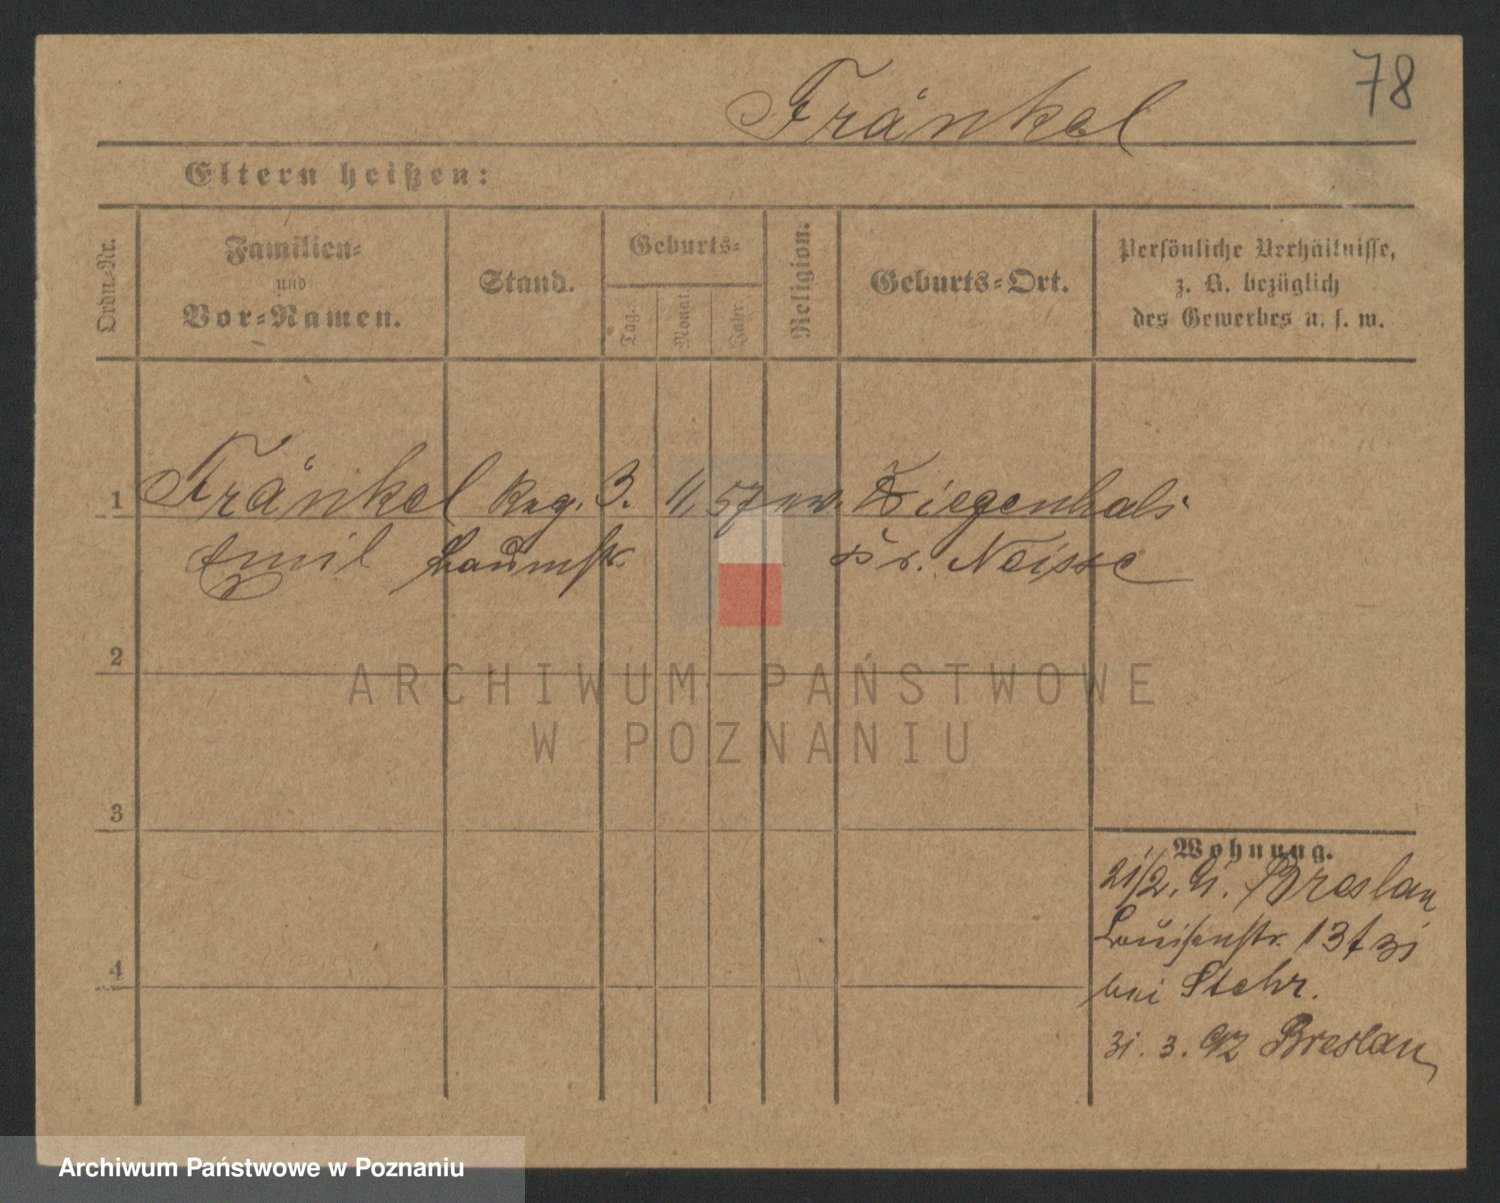 78
Fränkel
Eltern heißen:
Ordn.-Nr.
Familien-
und
Vor-Namen.
Stand.
Geburts-
Tag.
Monat
Jahr
Religion.
Geburts-Ort.
Persönliche Verhältnisse,
z. B. bezüglich
des Gewerbes u. s. w.
1 Fränkel Reg. 3. 11. 57 ev. Ziegenhals
Emil Baumstr. Kr. Neisse
2
3
4
Wohnung.
21/2. 91. Breslau
Louisenstr. 13
bei Stehr.
31. 3. 92 Breslau
ARCHIWUM PAŃSTWOWE
W POZNANIU
Archiwum Państwowe w Poznaniu